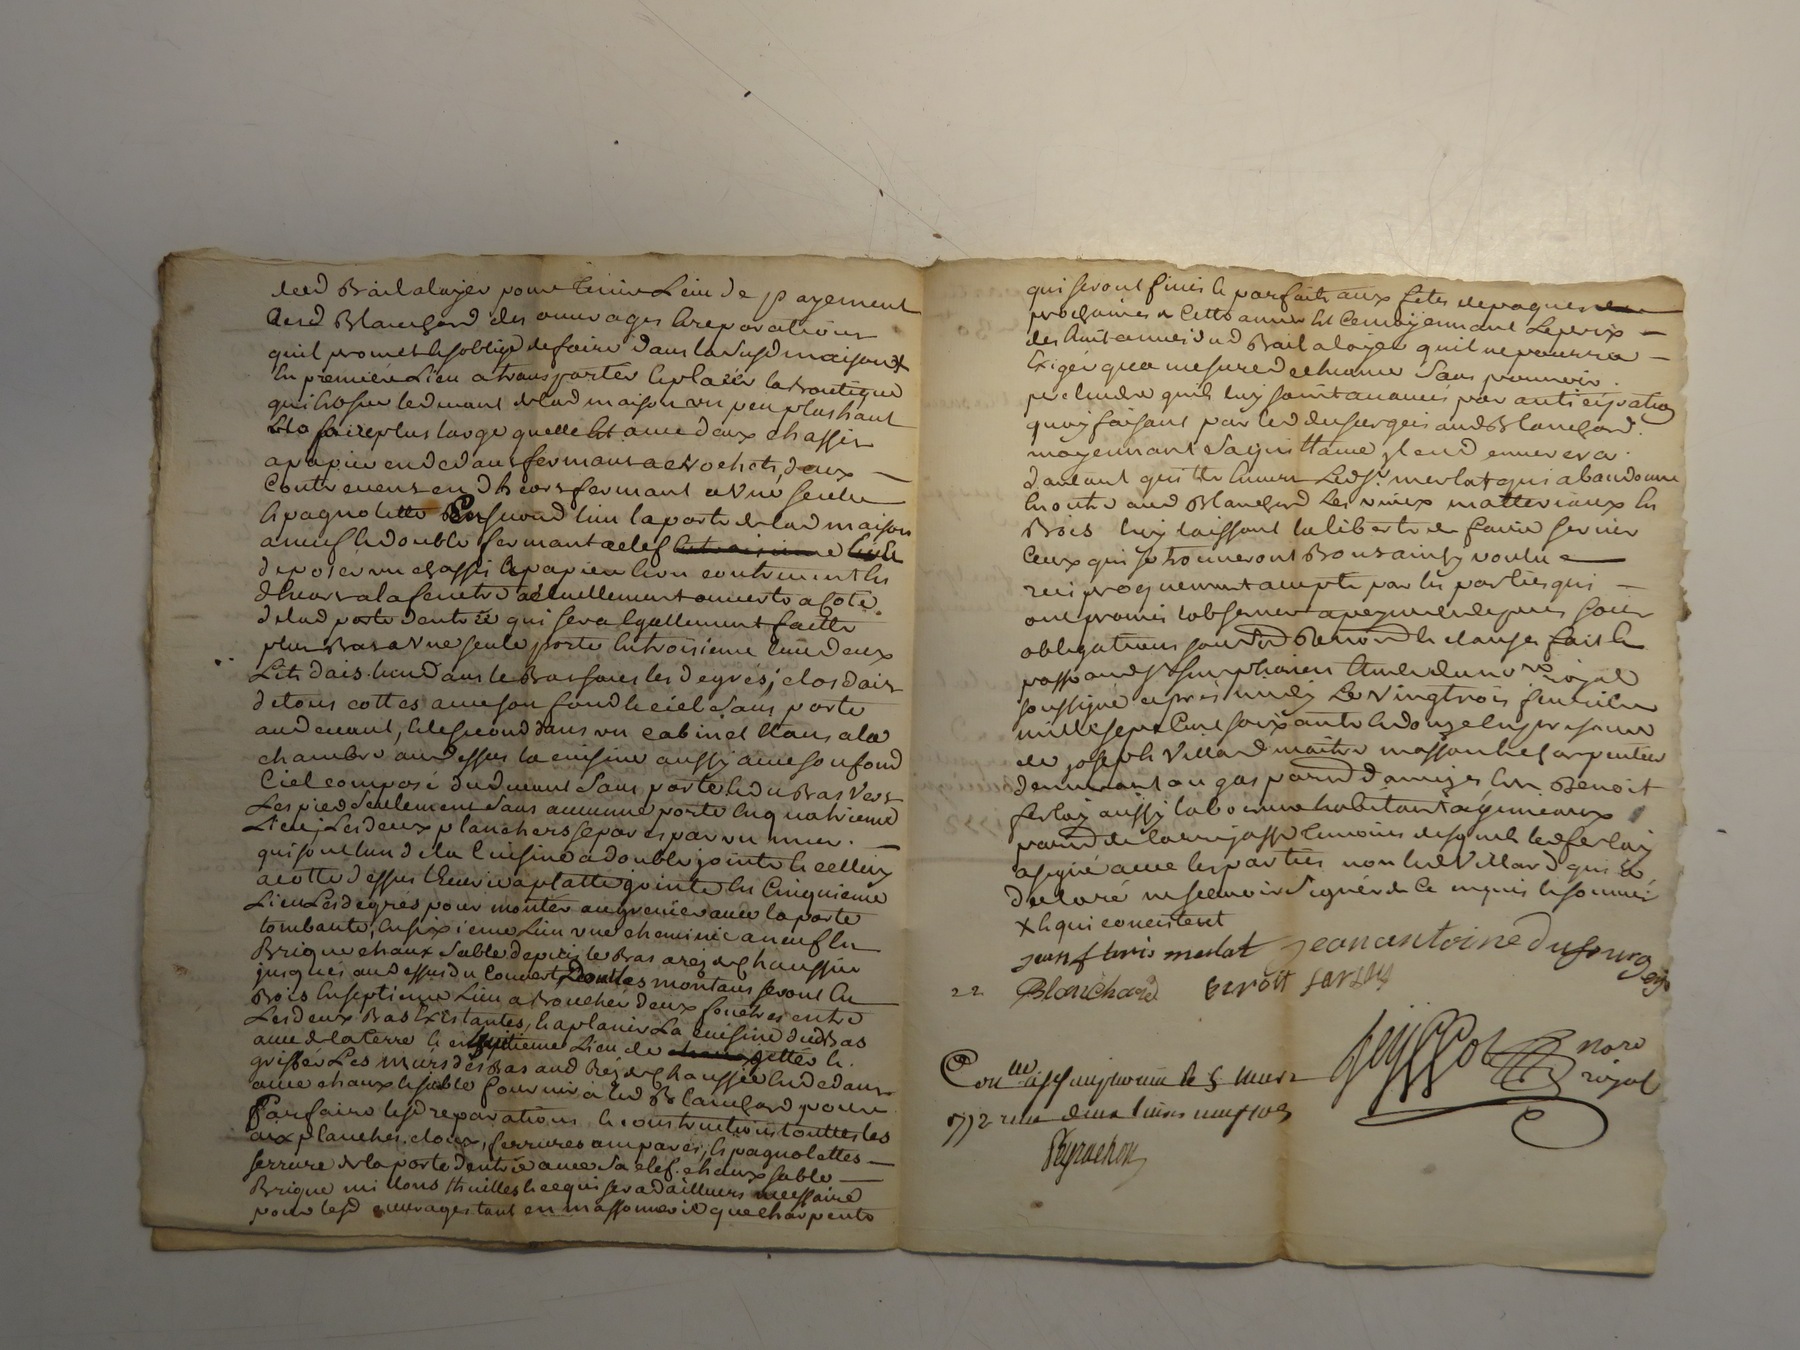 dud Bail aloyer pour tenir Lieu de payement
Aud Blanchard des ouvrages et reparations
quil promet et soblige de faire dans la susd maison x
En premier Lieu a transporter et placer la Boutique
qui est sur le devant de lad maison un peu plus haut
et la faire plus large quelle est avec deux chassis
a papier en dedans fermant a crochets deux
Contrevens en dheors fermant a une seule
Epagnolette En second lieu la porte de lad maison
a neuf et double fermant a clef
de poser un chassis a papier et un contrevent en
dheors a la fenetre actuellement ouverte a Coté
de lad porte dentrée qui sera Egallement faitte
plus Bas a une seule porte En troisieme lieu deux
Lits dais Lun dans le Bas sous les degrés, clos dais
de tous cottes avec son fond et ciel sans porte
au devant, et le second dans un cabinet Etans a la
chambre au dessus la cuisine aussy avec son fond
Ciel composé du devant sans porte et du Bas vers
Les pied seulement sans aucune porte En quatrieme
Lieu, Les deux planchers separés par un mur
qui sont lun de la Cuisine a double jointe et celluy
a cotte dessus lEcurie a platte jointe En Cinquieme
Lieu Les degres pour monter au grenier avec la porte
tombante, En sixieme Lieu une cheminée a neuf En
Brique chaux sable depuis le Bas a rez de Chaussée
jusques au dessus du Couvert, Dont Les montans seront En
Bois En septieme Lieu a Boucher deux fenetres entre
Les deux Bas Existantes, et aplanir La Cuisine dud Bas
avec de la terre et en huitieme Lieu de jetter et
grisser Les murs des Bas aud Rez de Chaussée en dedans
avec chaux et sable fournir a lud Blanchard pour
Parfaire lesd reparations et constructions touttes les
aix planches, cloux, serrures amparés, Epagnolettes
serrure de la porte dentrée avec sa clef, chaux sable
Brique millons thuilles et ce qui sera dailleurs necessaire
pour lesd ouvrages tant en massonnerie que charpente
qui seront finis et parfaits aux fetes de paques
prochaines de Cette année Et Ce moyennant Le prix
des huit années dud Bail aloyer quil ne pourra
Exiger qua mesure decheance Sans pouvoir
pretendre quils luy soint avancés par anticipation
quoy faisant par led Dufurgeis aud Blanchard
moyennant sa quittance il en demeurera
dautant quitte Envers Led Sr. merlat qui abandonne
En outre aud Blanchard Les vieux matteriaux En
Bois luy laissant la liberté de faire servir
Ceux qui se trouveront Bons ainsy voulu
reciproquement accepté par les parties qui
ont promis lobserver a peyne de depens sous
obligations soumd Renond et clauses fait et
passé aud St. Simphorien Etude du nre royal
soussigné apres midy Le Vingt trois fevrier
mille sept Cent soixante et douze En presence
de joseph Villard maitre masson et charpentier
demeurant au gas parroisse et Benoit
ferlay aussy laboureur habitant a gimeaux
parroisse de temoins desquels led ferlay
a signé avec les parties non led Villard qui a
declaré ne scavoir signer de Ce enquis et sommé
x Et qui concistent
jean f lovis merlat jean antoine dufourgeis
22 Blanchard Benoit farlay
Conlle a St Simphorien le 5 mars
1772 reçu deux livres neuf sols
nore
royal